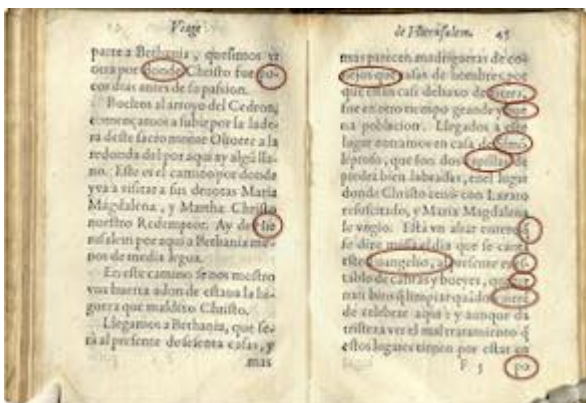 Viage
parte a Bethania, quesimos yr
otra por donde Christo fue po-
cos dias antes de su passion.
Bueltos al arroyo del Cedron,
començamos a subir por la lade-
ra deste sacro monte Olivete a la
redonda del por aqui ay algũ lla-
no. Este es el camino por donde
yva a visitar a sus devotas Maria
Magdalena, y Martha Christo
nuestro Redemptor. Ay de Hie
rusalem por aqui a Bethania me-
nos de media legua.
En este camino se nos mostro
una huerta adonde estava la hi-
guera que maldixo Christo.
Llegamos a Bethania, que se-
rà al presente de sesenta casas, y
mas
de Hierusalem. 45
mas parecen madrigueras de co-
nejos que casas de hombres, por
que estan casi debaxo de tierra,
fue en otro tiempo grande y
na poblacion. Llegados a este
lugar entramos en casa de Simõ
leproso, que son dos capillas de
piedra bien labradas, en el lugar
donde Christo ceno con Lazaro
resuscitado, y Maria Magdalena
le vngio. Està vn altar entero, q̃
se dize missa el dia que se canta
este Euangelio, al presente es es-
tablo de cabras y bueyes, que
mas bien q̃ limpiar quãdo quiere
de celebrar aqui: y aunque da
tristeza ver el mal tratamiento q̃
estos lugares tienen por estar en
F 5 po